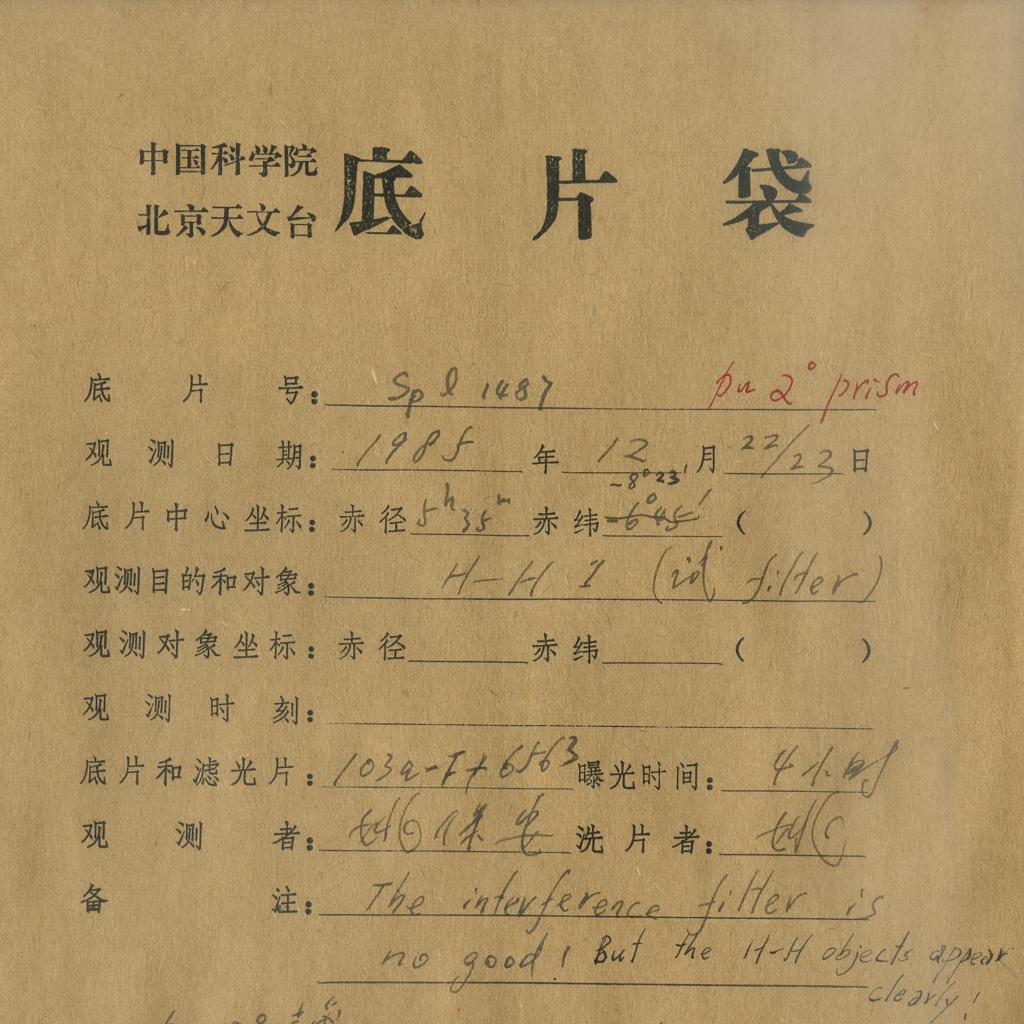 中国科学院
北京天文台 底片袋
底片号: Spl 1487 pu 2° prism
观测日期: 1985年12月22/23日
-8°23′
底片中心坐标: 赤径 5h35m 赤纬 -6°45′ ( )
观测目的和对象: H-H I (id filter)
观测对象坐标: 赤径 赤纬 ( )
观测时刻:
底片和滤光片: 103a-F+6563 曝光时间: 4小时
观测者: 保安 洗片者:
备注: The interference filter is
no good! But the H-H objects appear
clearly!